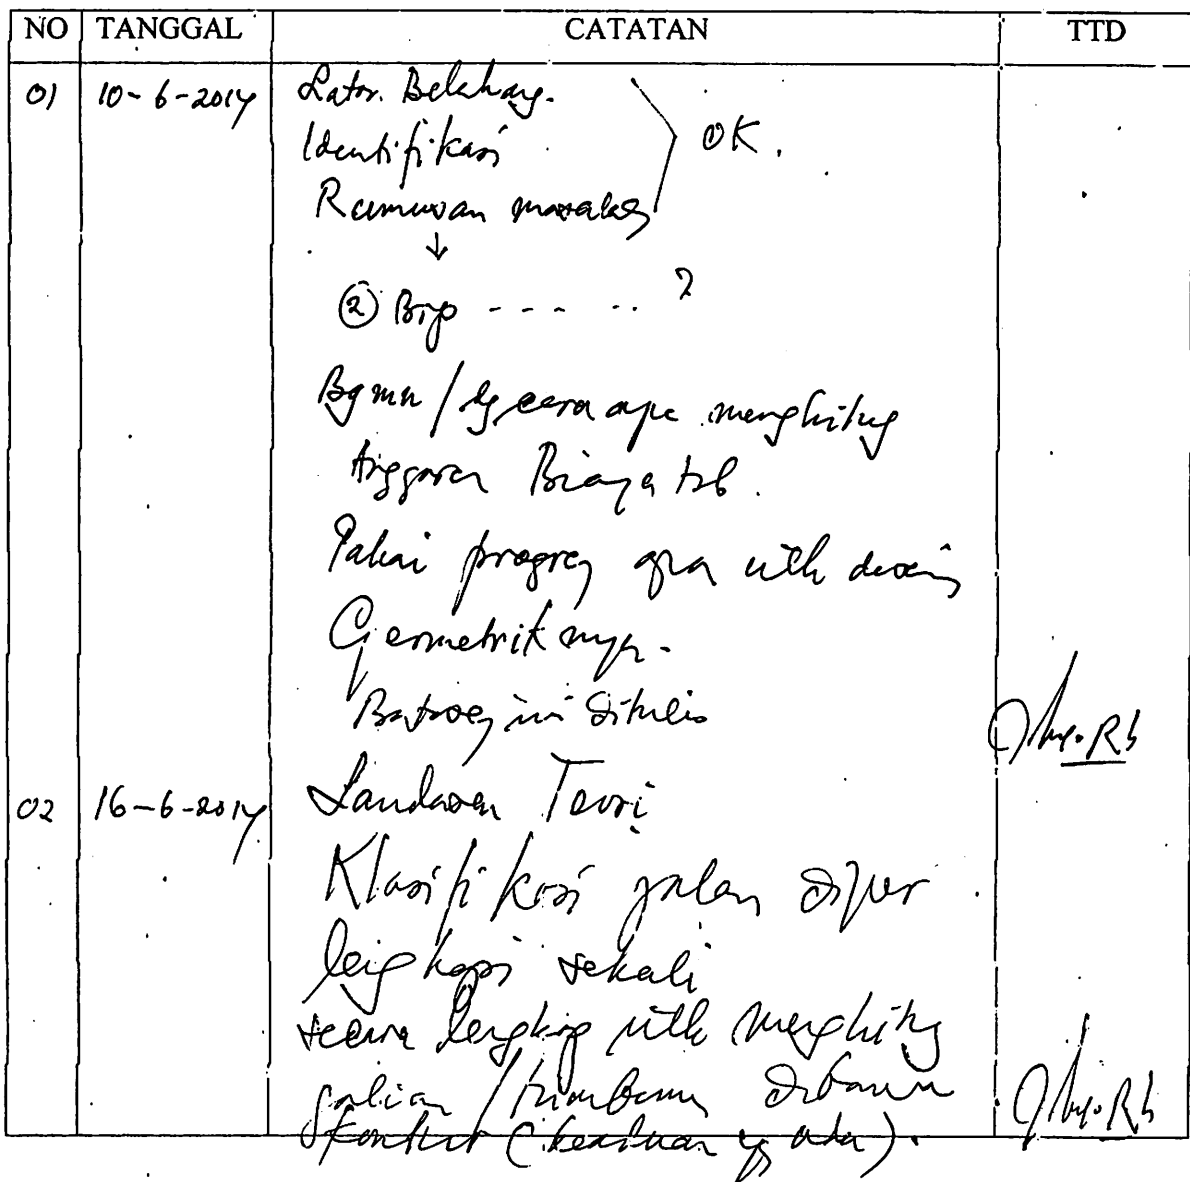 NO TANGGAL CATATAN TTD
01 10-6-2014 Latar Belakang.
Identifikasi OK.
Rumusan masalah
↓
② Brp - - - - .. ?
Bgmn / dg cara apa menghitung
Anggaran Biaya tsb.
Pakai program apa utk desain
Geometriknya.
Batasan ini ditulis
02 16-6-2014 Landasan Teori
Klasifikasi jalan diper
lengkapi sekali
secara lengkap utk menghitung
galian / timbunan
(keadaan yg ada).